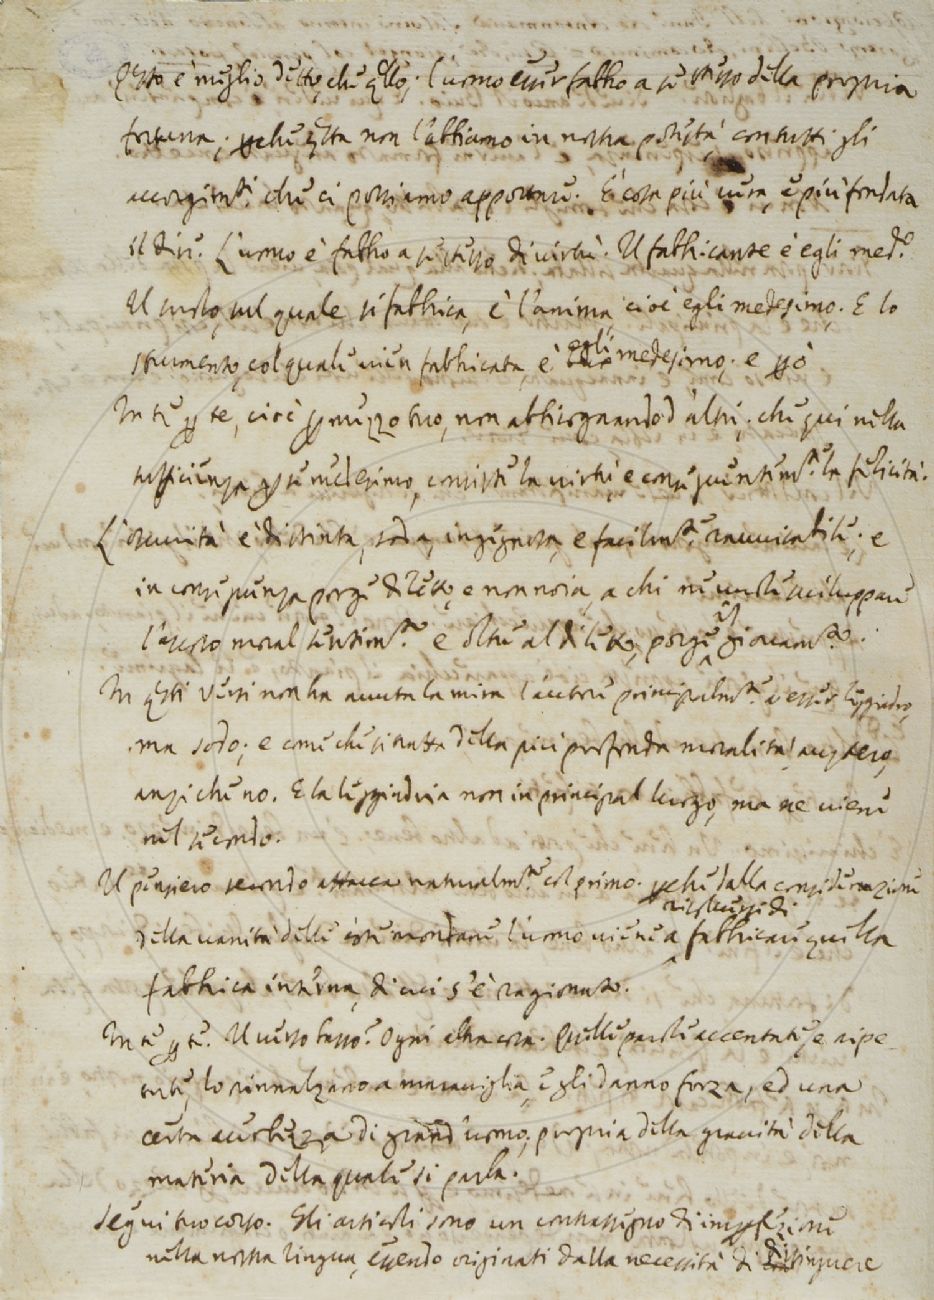 Q.sto è meglio detto, che q.llo; l'uomo esser fabbro a se stesso della propria
fortuna; p.chè q.sta non l'abbiamo in nostra potestà, con tutti gli
accorgim.ti che ci possiamo apportare. È cosa più vera, e più fondata
il dire. L'uomo è fabbro a se stesso di virtù. Il fabbricante è egli med.o
Il suolo, sul quale si fabbrica, è l'anima, cioè egli medesimo. E lo
strumento, col quale vien fabbricata, è egli medesimo. e p.ò
In te p. te, cioè p. mezzo tuo, non abbisognando d'altri; che qui nella
sufficienza p. se medesimo, consiste la virtù, e conseguentem.te la felicità.
L'oscurità è distinta, soda, ingegnosa, e facilm.te ravvisabile; e
in conseguenza porge diletto, e non noia, a chi ne vuole sviluppare
l'ascoso moral sentim.to e oltre al diletto, porge il giovam.to.
In q.sti versi non ha avuta la mira l'autore principalm.te d'esser leggiadro,
ma sodo; e come che si tratta della più profonda moralità, austero,
anzi che no. E la leggiadria non in principal luogo, ma ne viene
nel secondo.
Il pensiero secondo attacca naturalm.te col primo. p.chè dalla considerazione
della vanità delle cose mondane l'uomo viene a fabbricare quella
fabbrica interna, di cui s'è ragionato.
In te p. te. Il verso basso. Ogni altra cosa. Quelle parole accentate, e ripe-
tute, lo rinnalzano a maraviglia, e gli danno forza, ed una
certa accortezza di grand'uomo, propria della gravità della
materia della quale si parla.
Segui tuo corso. Gli articoli sono un contrassegno di imp.fezione
nella nostra lingua, essendo originati dalla necessità di distinguere